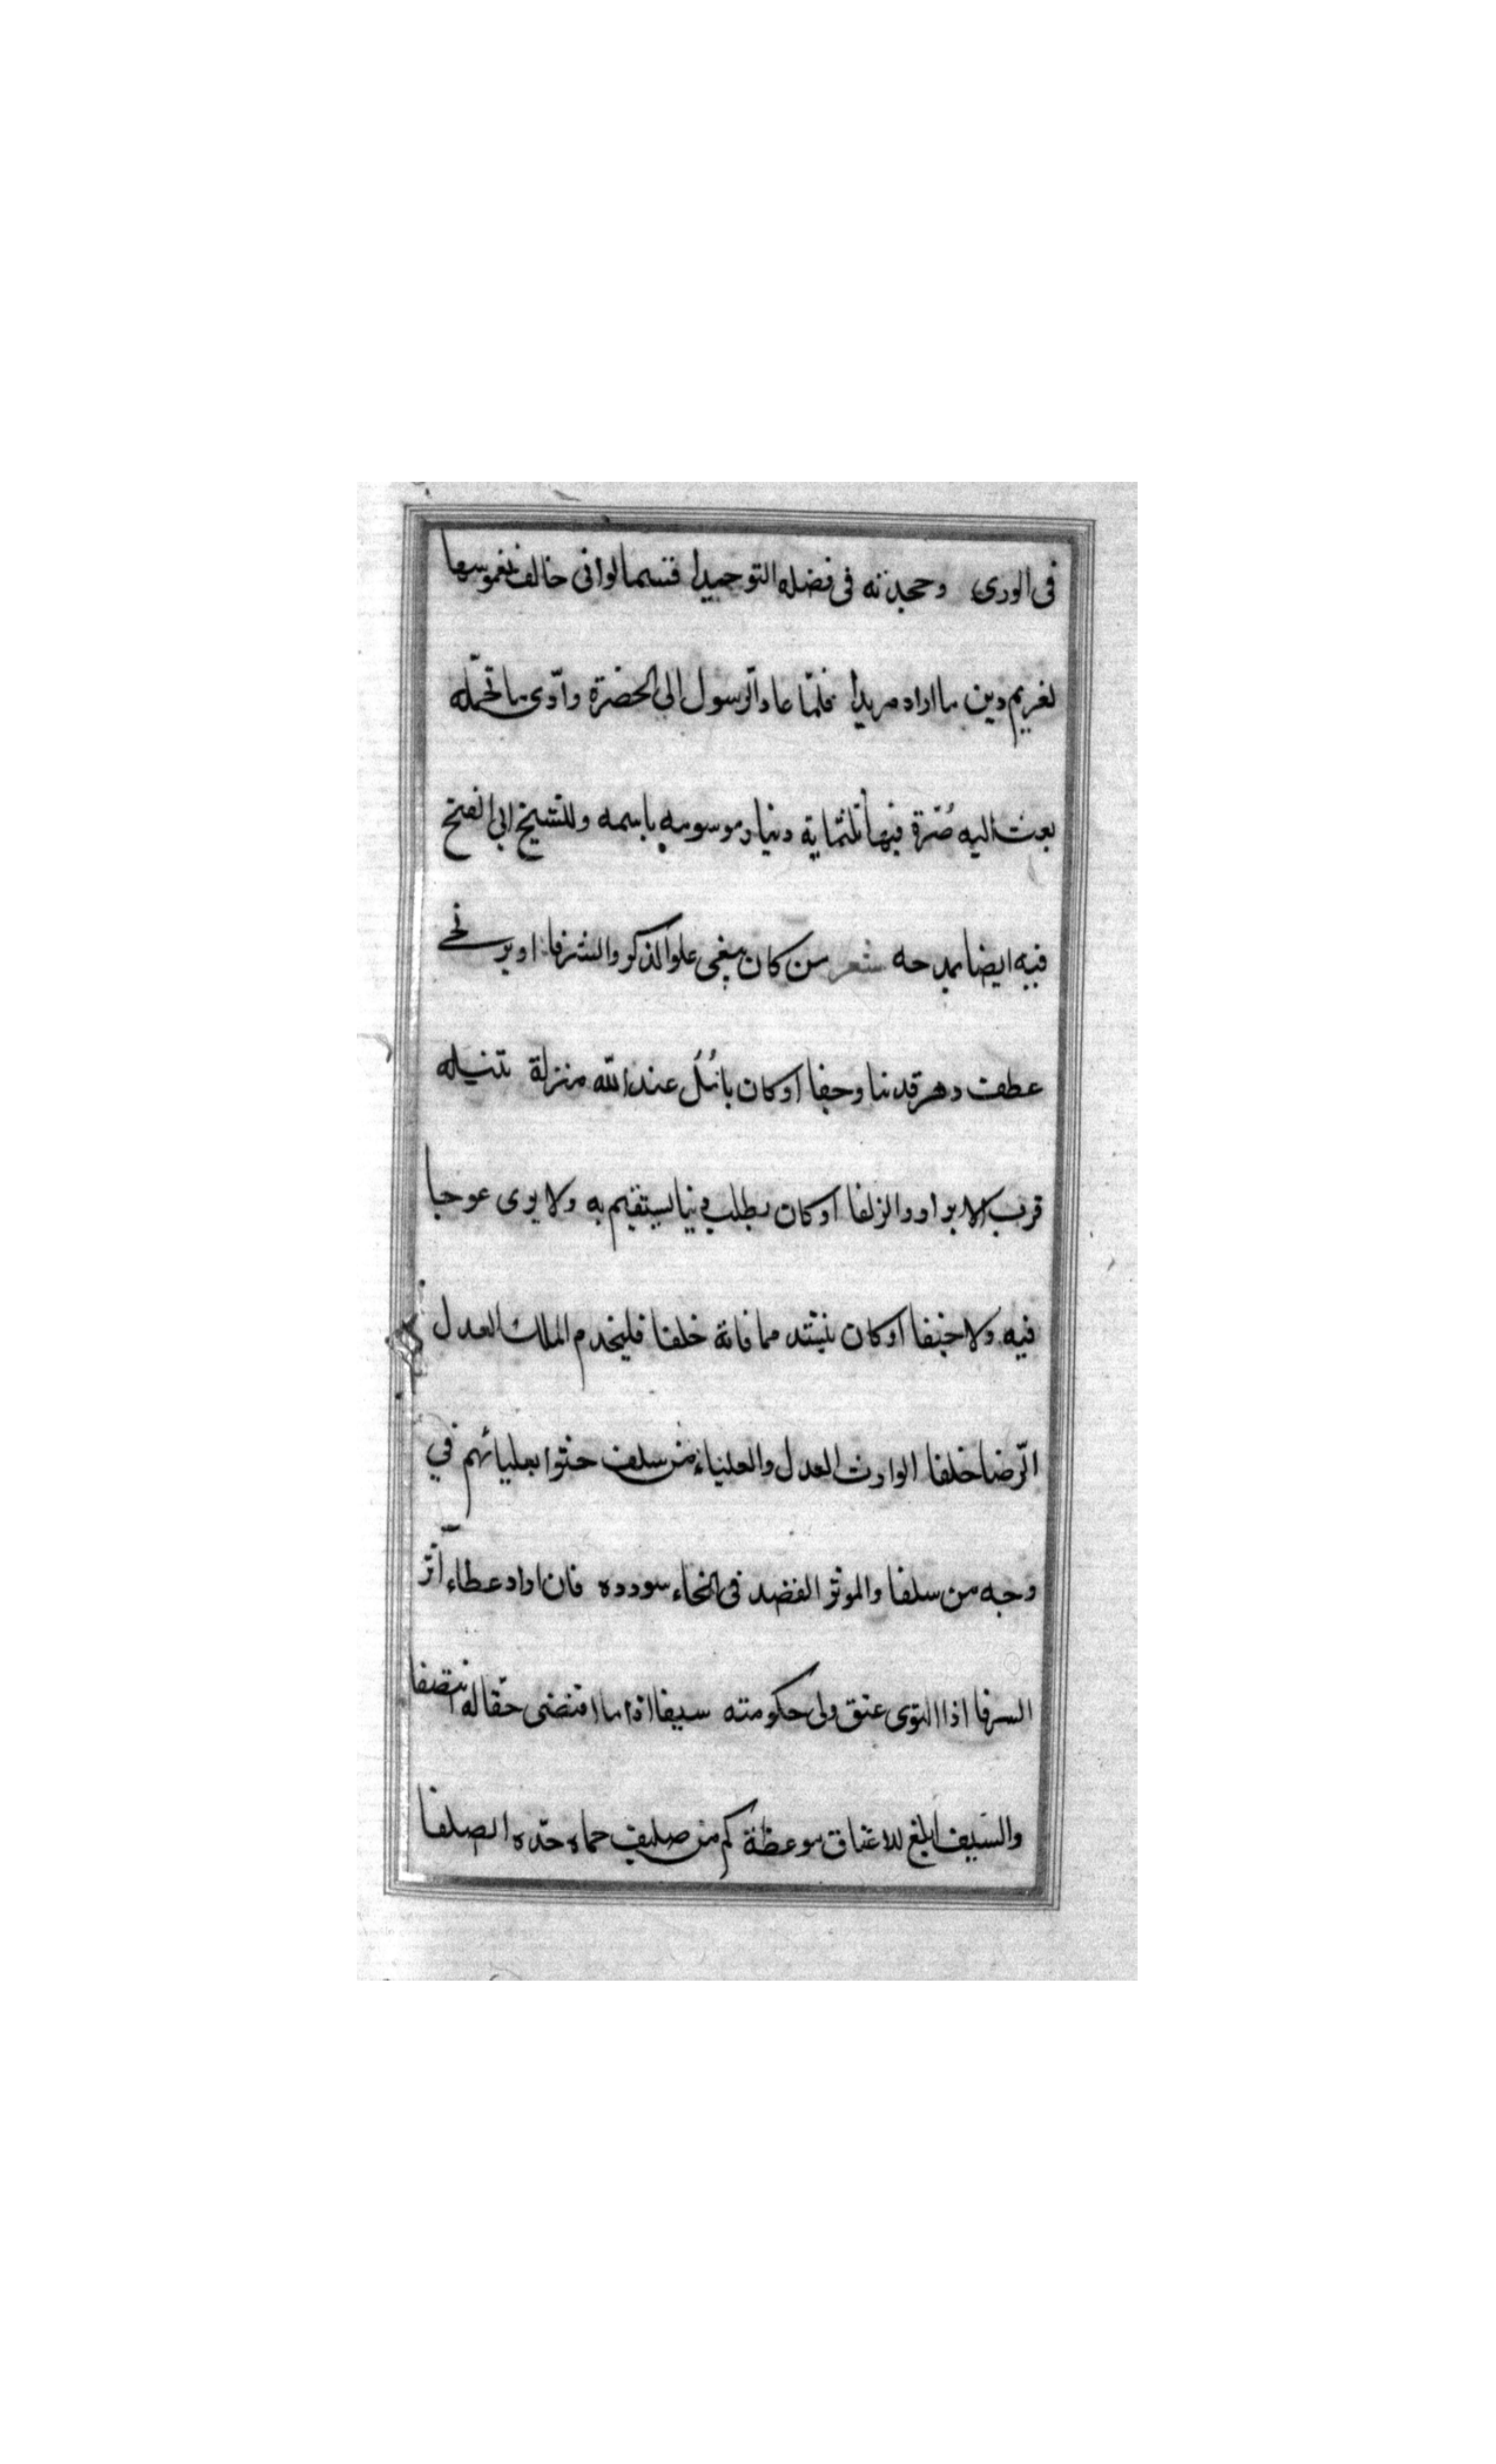 فى الورى وجحدته فى فضله التوحيدا قسما لوانى حالف بغموسها
لغريم دين ما اراد مزيدا فلمّا عاد الرّسول الى الحضرة وادّى ما تحمّله
بعث اليه صُرّة فيها ثلثماية دينار موسومه باسمه وللشيخ ابى الفتح
فيه ايضا يمدحه شعر من كان يبغى علو الذكر والشرفا او يرتجى
عطف دهر قد نبا وجفا او كان يأمُل عند الله منزلة تنيله
قرب الابرار والزلفا او كان يطلب دينا يستقيم به ولا يرى عوجا
فيه ولا جنفا او كان ينشد مما فاته خلفا فليخدم الملك العدل
الرّضا خلفا الوارث العدل والعلياء من سلف حثوا بعليائهم فى
وجه من سلفا والموثر القصد فى انحاء سودده فان اراد عطاء آثر
السرفا اذا التوى عنق ولى حكومته سيفا اذا ما اقتضى حقا له انتصفا
والسّيف ابلغ للاعناق موعظة كم من صليف حماه حدّه الصلفا